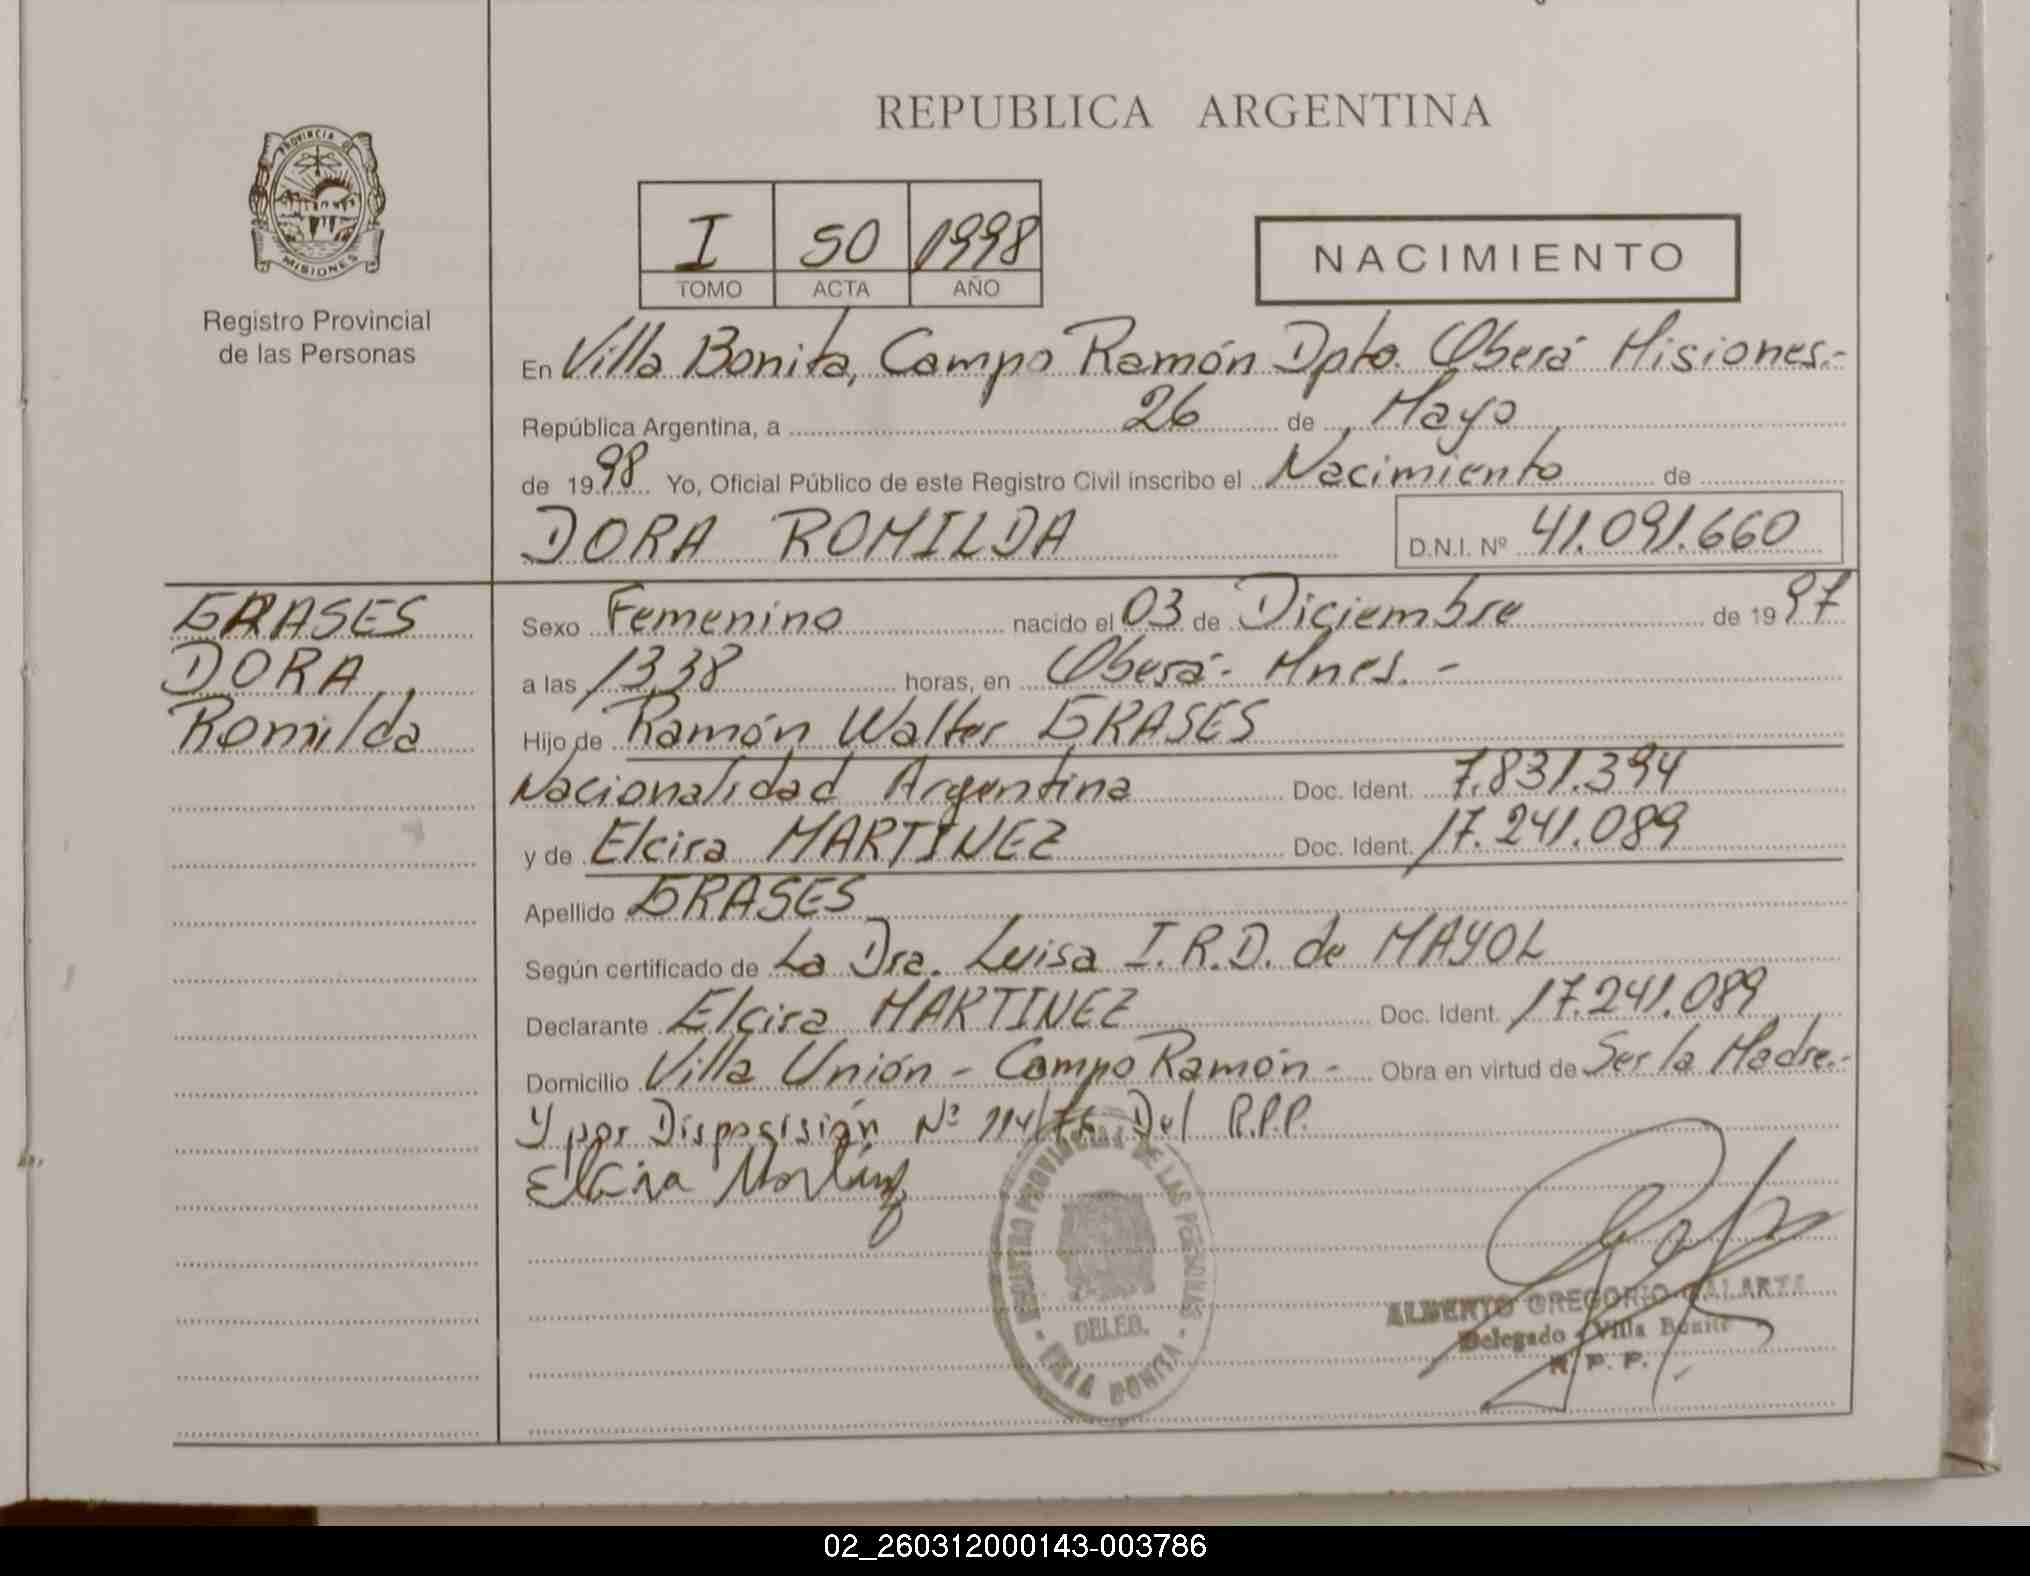 REPUBLICA ARGENTINA
PROVINCIA DE
MISIONES
Registro Provincial
de las Personas
I 50 1998
TOMO ACTA AÑO
NACIMIENTO
En Villa Bonita, Campo Ramón Dpto. Oberá Misiones.-
República Argentina, a 26 de Mayo
de 1998 Yo, Oficial Público de este Registro Civil inscribo el Nacimiento de
DORA ROMILDA D.N.I. Nº 41.091.660
GRASES
DORA
Romilda
Sexo Femenino nacido el 03 de Diciembre de 1997
a las 13,38 horas, en Oberá- Mnes.-
Hijo de Ramón Walter GRASES
Nacionalidad Argentina Doc. Ident. 7.831.394
y de Elcira MARTINEZ Doc. Ident. 17.241.089
Apellido GRASES
Según certificado de La Dra. Luisa I.R.D. de MAYOL
Declarante Elcira MARTINEZ Doc. Ident. 17.241.089
Domicilio Villa Unión - Campo Ramón - Obra en virtud de Ser la Madre.-
Y por Disposisión Nº 114/76 Del R.P.P.
Elcira Martinez
REGISTRO PROVINCIAL DE LAS PERSONAS
DELEG.
VILLA BONITA
ALBERTO GREGORIO GALARZA
Delegado Villa Bonita
R. P. P.
02_260312000143-003786